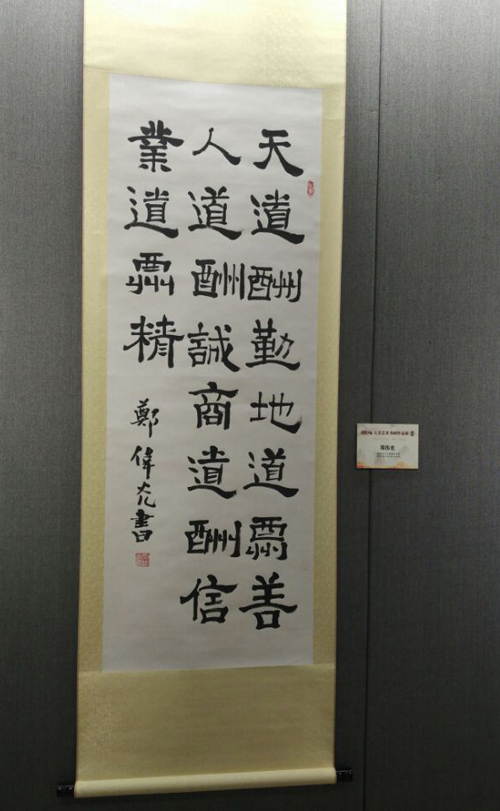 天道酬勤地道酬善
人道酬誠商道酬信
業道酬精
鄭偉光書